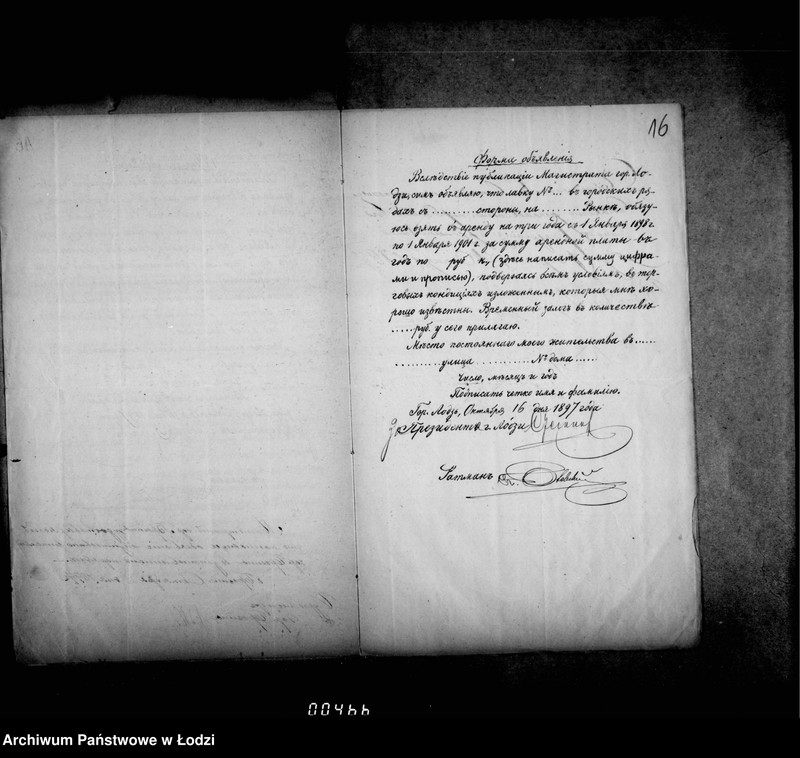 16
Форма объявленія
Вслѣдствіе публикаціи Магистрата гор. Ло-
дзи, симъ объявляю, что лавку № ... въ городскихъ ря-
дахъ съ ......... стороны, на ......... Рынкѣ, обязу-
юсь взять въ аренду на три года съ 1 Января 1898 г.
по 1 Января 1901 г. за сумму арендной платы въ
годъ по руб. к., (здѣсь написать сумму цифра-
ми и прописью), подвергаясь всѣмъ условіямъ, въ тор-
говыхъ кондиціяхъ изложеннымъ, которыя мнѣ хо-
рошо извѣстны. Временный залогъ въ количествѣ
..... руб. у сего прилагаю.
Мѣсто постояннаго моего жительства въ ......
.......... улица ............ № дома ......
Число, мѣсяцъ и годъ
Подписать четко имя и фамилію.
Гор. Лодзь, Октября 16 дня 1897 года
Президентъ г. Лодзи
Ратманъ
00466
Archiwum Państwowe w Łodzi